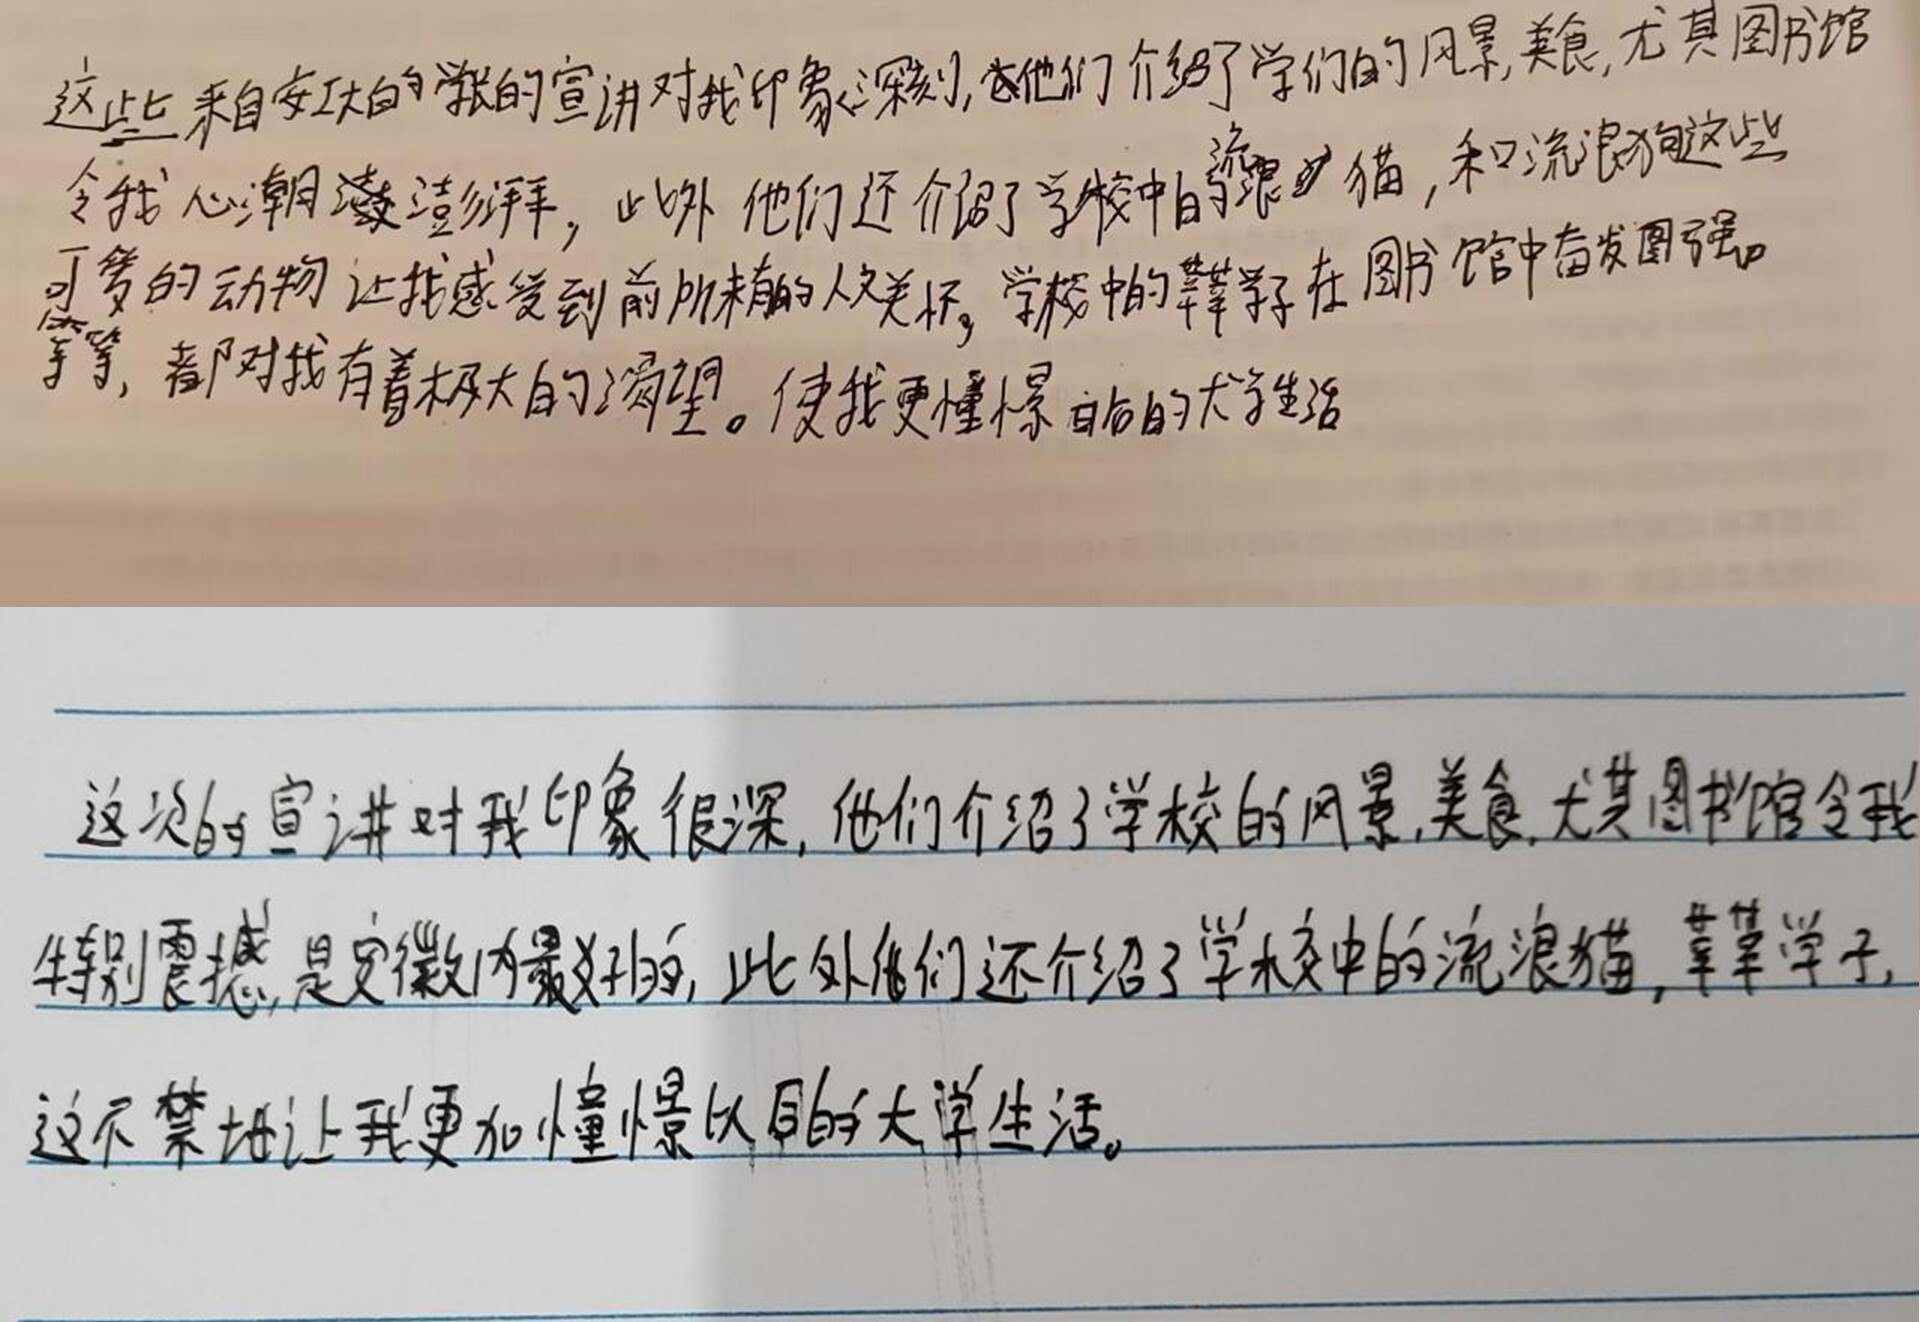 这些来自安工大的学长的宣讲对我印象深刻,他们介绍了学们的风景,美食,尤其图书馆
令我心潮澎湃,此外他们还介绍了学校中的流浪猫,和流浪狗这些
可爱的动物让我感受到前所未有的人文关怀,学校中的莘莘学子在图书馆中奋发图强。
等等,都对我有着极大的渴望。使我更憧憬的大学生活
这次的宣讲对我印象很深,他们介绍了学校的风景,美食,尤其图书馆令我
特别震撼,是安徽内最好的,此外他们还介绍了学校中的流浪猫,莘莘学子,
这不禁地让我更加憧憬以后的大学生活。